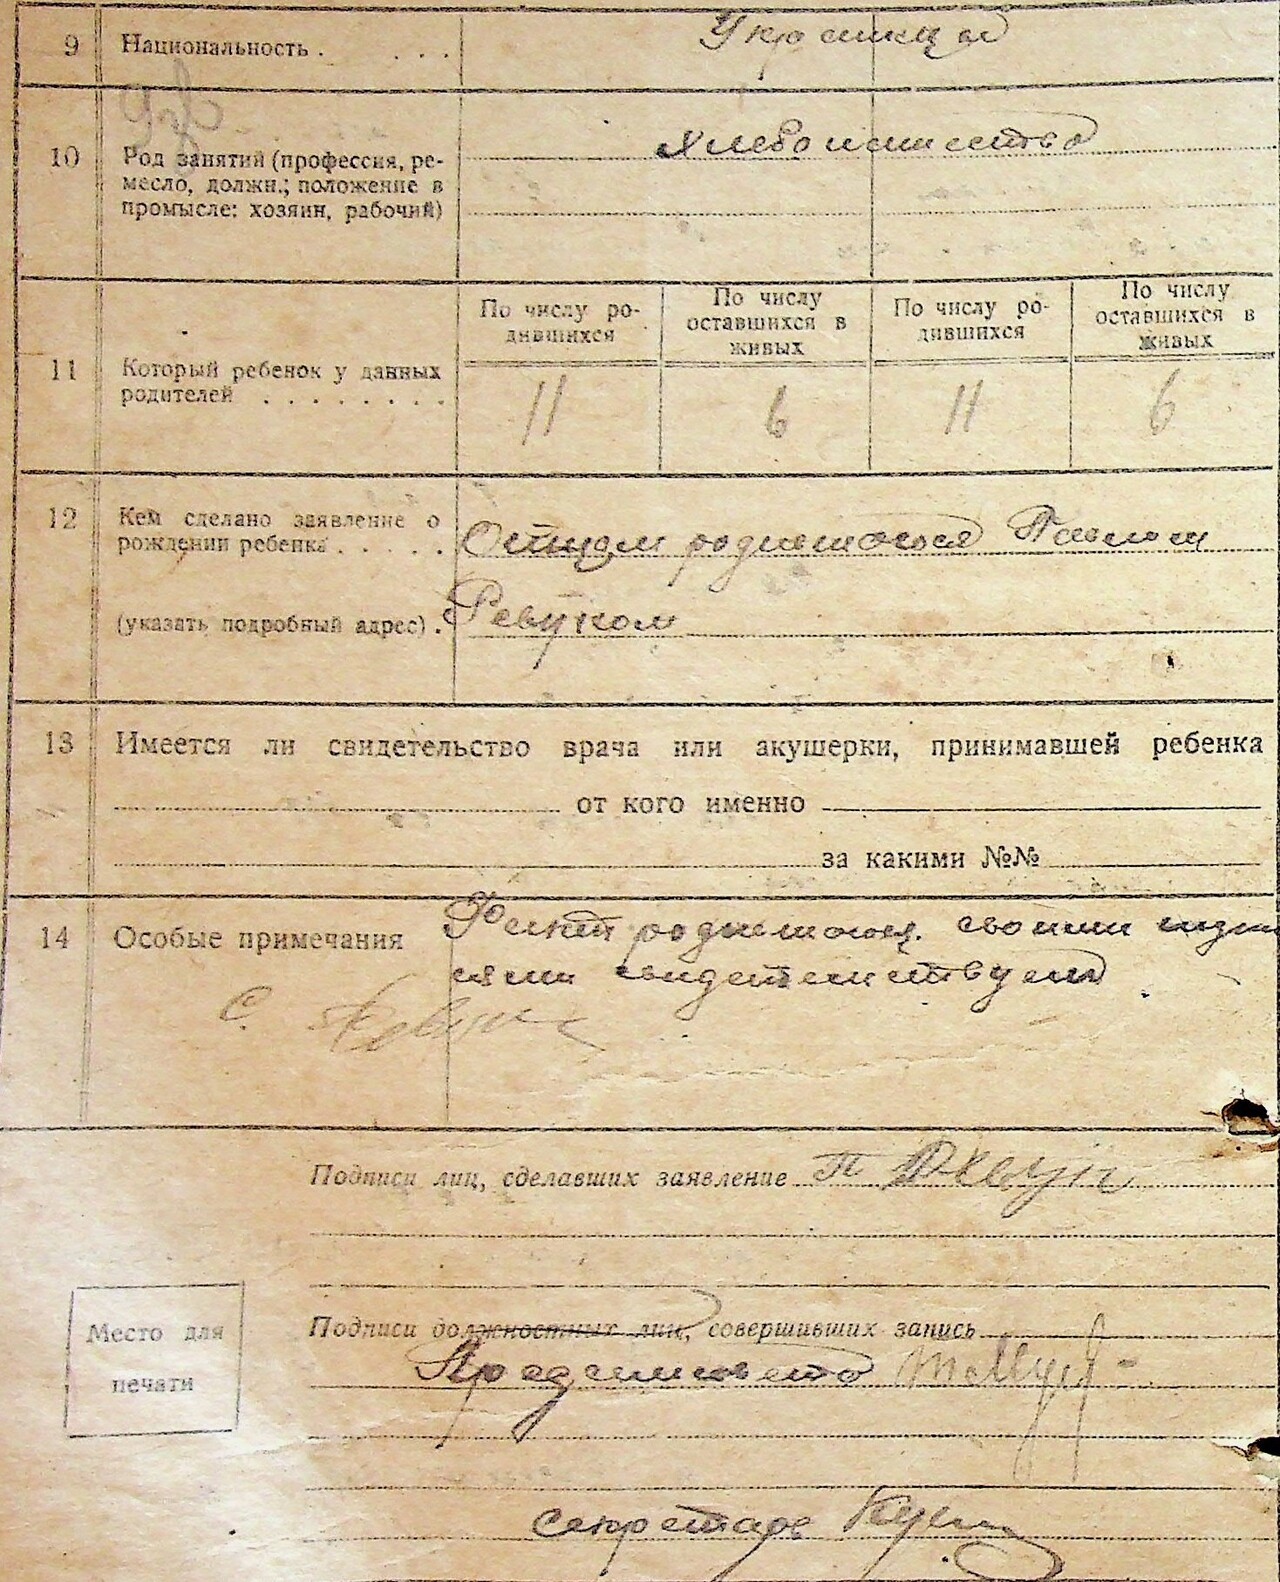 9 Национальность . . . . Украинцы
10 Род занятий (профессия, ре-
месло, должн.; положение в
промысле: хозяин, рабочий)
Хлебопашество
По числу ро-
дившихся
По числу
оставшихся в
живых
По числу ро-
дившихся
По числу
оставшихся в
живых
11 Который ребенок у данных
родителей . . . . . . . .
11 6 11 6
12 Кем сделано заявление о
рождении ребенка . . . . .
Отцом родившогося Павлом
(указать подробный адрес) . Ревуком
13 Имеется ли свидетельство врача или акушерки, принимавшей ребенка
от кого именно
за какими №№
14 Особые примечания
Факт родившогося своими
свидетельствуем
С. Ревук
Подписи лиц, сделавших заявление П Ревук
Подписи должностных лиц, совершивших запись
Пред сельсовета
Место для
печати
секретарь